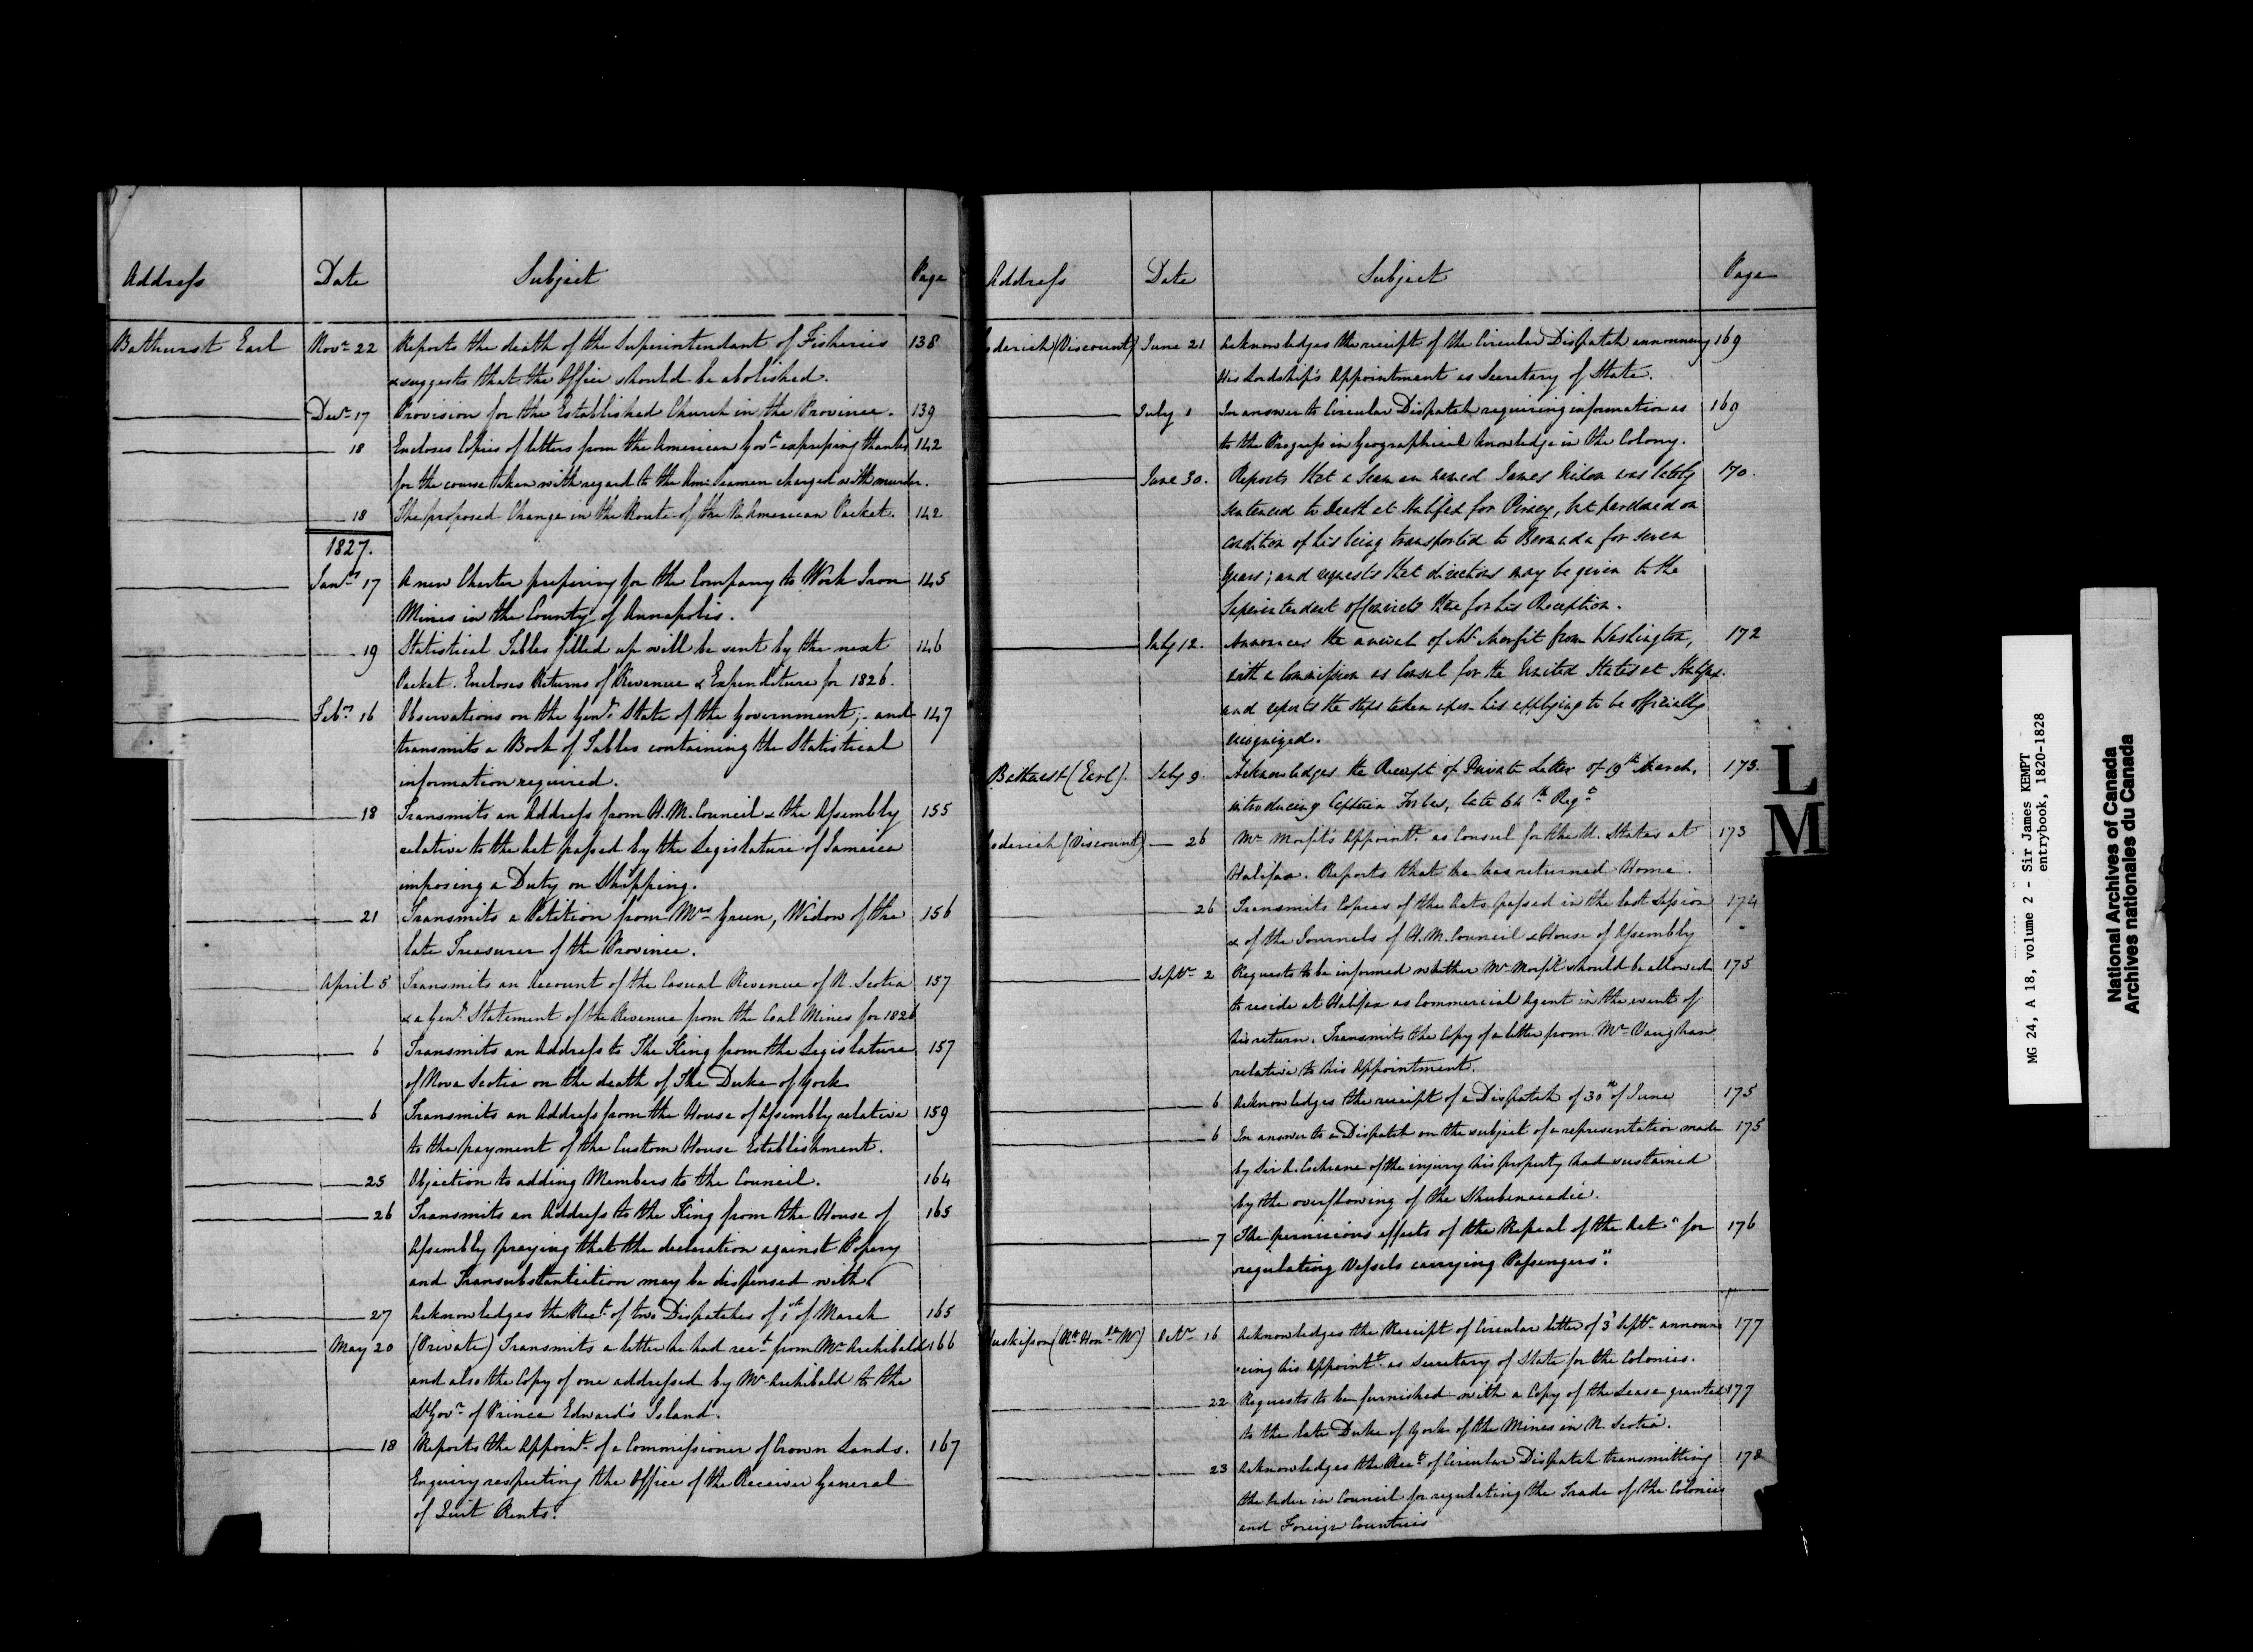 Address Date Subject Page
Bathurst Earl Novr 22 Reports the death of the Superintendant of Fisheries 138
& suggests that the Office should be abolished.
Decr 17 Provision for the Established Church in the Province. 139
18 Encloses Copies of letters from the American Govt expressing thanks 142
for the course taken with regard to the Am: Seamen charged with murder.
18 The proposed Change in the Route of the N. American Packet. 142
1827.
Jany 17 A new Charter preparing for the Company to Work Iron 145
Mines in the County of Annapolis.
19 Statistical Tables filled up will be sent by the next 146
Packet. Encloses Returns of Revenue & Expenditure for 1826.
Feby 16 Observations on the Genl State of the Government; and 147
transmits a Book of Tables containing the Statistical
information required.
18 Transmits an Address from H.M. Council & the Assembly 155
relative to the Act passed by the Legislature of Jamaica
imposing a Duty on Shipping.
21 Transmits a Petition from Mrs Green, Widow of the 156
late Treasurer of the Province.
April 5 Transmits an Account of the Casual Revenue of N. Scotia 157
& a Genl Statement of the Revenue from the Coal Mines for 1826
6 Transmits an Address to The King from the Legislature 157
of Nova Scotia on the death of The Duke of York
6 Transmits an Address from the House of Assembly relative 159
to the payment of the Custom House Establishment.
25 Objection to adding Members to the Council. 164
26 Transmits an Address to the King from the House of 165
Assembly praying that the declaration against Popery
and Transubstantiation may be dispensed with.
27 Acknowledges the Rect of two Dispatches of 1st of March 165
May 20 (Private) Transmits a letter he had rect from Mr Archibald 166
and also the Copy of one addressed by Mr Archibald to the
Lt Govr of Prince Edward's Island.
18 Reports the Appoint of a Commissioner of Crown Lands. 167
Enquiry respecting the Office of the Receiver General
of Quit Rents.
Address Date Subject Page
oderich (Viscount) June 21 Acknowledges the receipt of the Circular Dispatch announcing 169
His Lordship's Appointment as Secretary of State.
July 1 In answer to Circular Dispatch requiring information as 169
to the Progress in Geographical knowledge in the Colony.
June 30. Reports that a Seaman named James Nixon was lately 170.
sentenced to Death at Halifax for Piracy, but pardoned on
condition of his being transported to Bermuda for seven
years; and requests that directions may be given to the
Superintendent of Convicts there for his Reception.
July 12. Announces the arrival of Mr Morfit from Washington, 172
with a Commission as Consul for the United States at Halifax.
and reports the steps taken upon his applying to be officially
recognized.
Bathurst (Earl). July 9. Acknowledges the Receipt of Private Letter of 19th March, 173.
introducing Captain Forbes, late 64th Regt
oderich (Viscount) 26 Mr Morfit's Appointt as Consul for the U. States at 173
Halifax. Reports that he has returned Home.
26 Transmits Copies of the Acts passed in the last Session 174
& of the Journals of H.M. Council & House of Assembly
Septr 2 Requests to be informed whether Mr Morfit should be allowed 175
to reside at Halifax as Commercial Agent in the event of
his return. Transmits the Copy of a letter from Mr Vaughan
relative to his Appointment.
6 Acknowledges the receipt of a Dispatch of 30th of June 175
6 In answer to a Dispatch on the subject of a representation made 175
by Sir A. Cochrane of the injury his property had sustained
by the overflowing of the Shubenacadie.
7 The pernicious effects of the Repeal of the Act "for 176
regulating Vessels carrying Passengers".
uskisson (Rt Honble W) Octr 16 Acknowledges the Receipt of Circular letter of 3d Septr announ 177
cing his Appointt as Secretary of State for the Colonies.
22 Requests to be furnished with a Copy of the Lease granted 177
to the late Duke of York of the Mines in N. Scotia.
23 Acknowledges the Rect of Circular Dispatch transmitting 178
the Order in Council for regulating the Trade of the Colonies
and Foreign Countries
L
M
MG 24, A 18, volume 2 - Sir James KEMPT
entrybook, 1820-1828
National Archives of Canada
Archives nationales du Canada